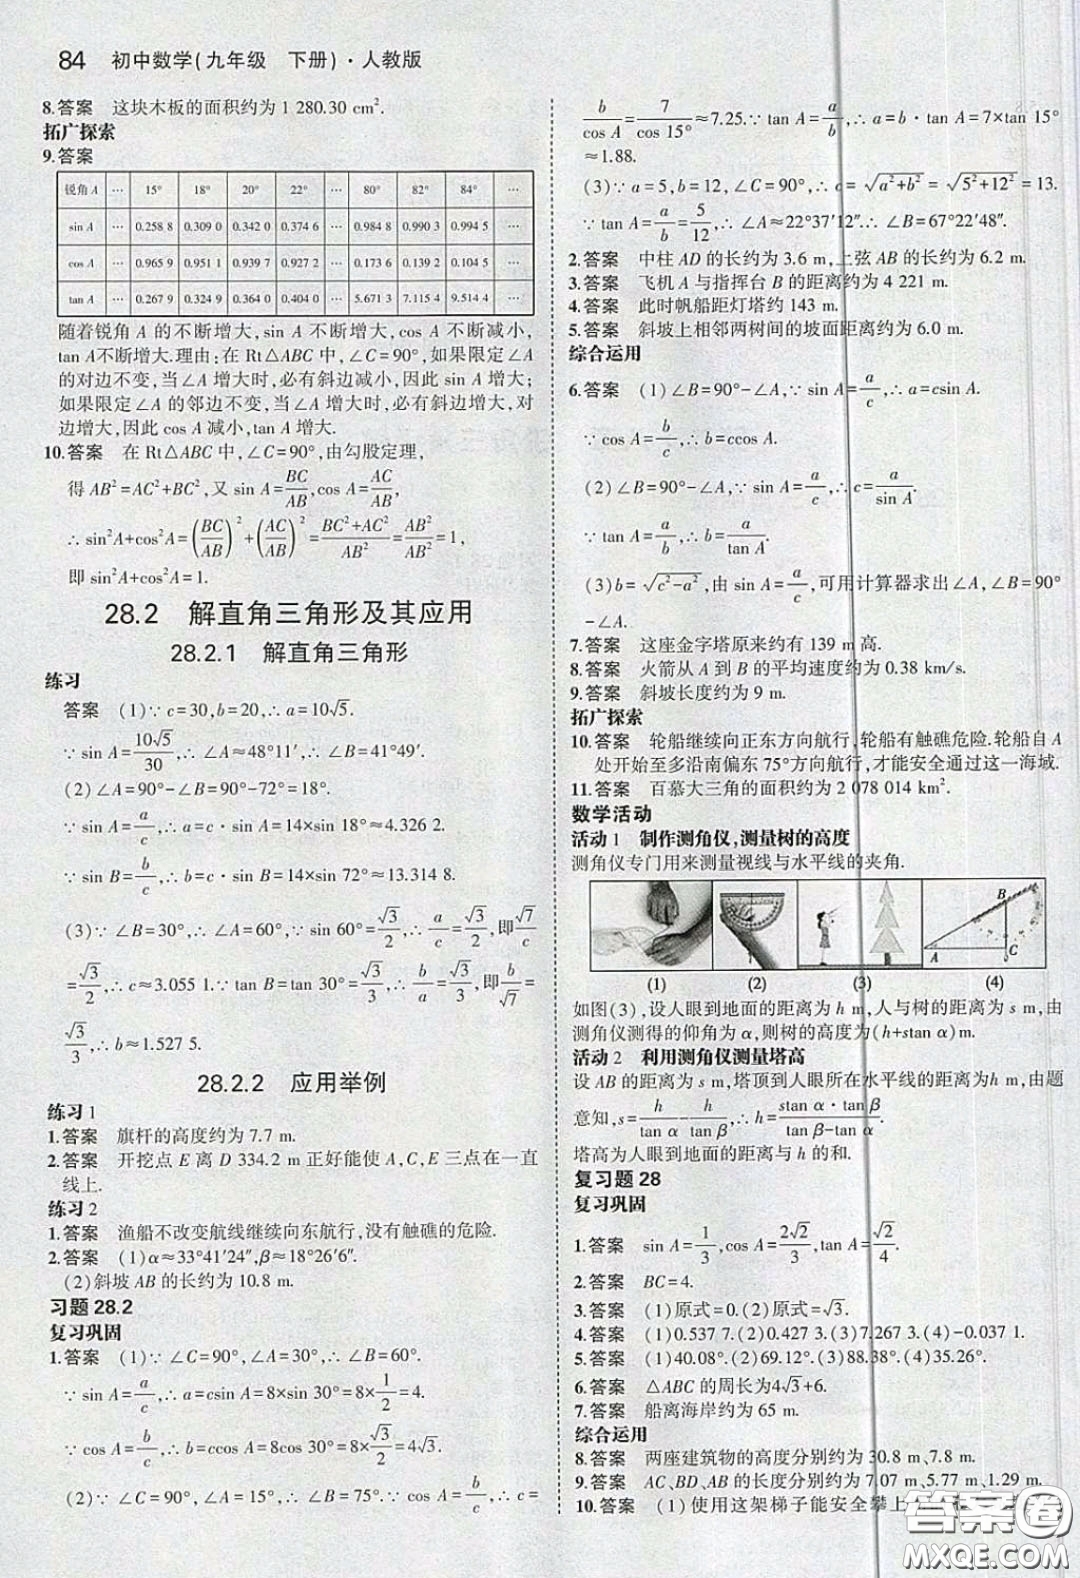 84 初中数学(九年级 下册)·人教版
8.答案 这块木板的面积约为 1 280.30 cm².
拓广探索
9.答案
锐角 A … 15° 18° 20° 22° … 80° 82° 84° …
sin A … 0.258 8 0.309 0 0.342 0 0.374 6 … 0.984 8 0.990 3 0.994 5 …
cos A … 0.965 9 0.951 1 0.939 7 0.927 2 … 0.173 6 0.139 2 0.104 5 …
tan A … 0.267 9 0.324 9 0.364 0 0.404 0 … 5.671 3 7.115 4 9.514 4 …
随着锐角 A 的不断增大,sin A 不断增大,cos A 不断减小,
tan A不断增大.理由:在 Rt△ABC 中,∠C=90°,如果限定∠A
的对边不变,当∠A 增大时,必有斜边减小,因此 sin A 增大;
如果限定∠A 的邻边不变,当∠A 增大时,必有斜边增大,对
边增大,因此 cos A 减小,tan A 增大.
10.答案 在 Rt△ABC 中,∠C=90°,由勾股定理,
得 AB²=AC²+BC²,又 sin A=BC/AB,cos A=AC/AB,
∴sin²A+cos²A=(BC/AB)²+(AC/AB)²=(BC²+AC²)/AB²=AB²/AB²=1,
即 sin²A+cos²A=1.
28.2 解直角三角形及其应用
28.2.1 解直角三角形
练习
答案 (1)∵c=30,b=20,∴a=10√5.
∵sin A=10√5/30,∴∠A≈48°11′,∴∠B=41°49′.
(2)∠A=90°-∠B=90°-72°=18°.
∵sin A=a/c,∴a=c·sin A=14×sin 18°≈4.326 2.
∵sin B=b/c,∴b=c·sin B=14×sin 72°≈13.314 8.
(3)∵∠B=30°,∴∠A=60°,∵sin 60°=√3/2,∴a/c=√3/2,即√7/c
=√3/2,∴c≈3.055 1.∵tan B=tan 30°=√3/3,∴b/a=√3/3,即b/√7=
√3/3,∴b≈1.527 5.
28.2.2 应用举例
练习 1
1.答案 旗杆的高度约为 7.7 m.
2.答案 开挖点 E 离 D 334.2 m 正好能使 A,C,E 三点在一直
线上.
练习 2
1.答案 渔船不改变航线继续向东航行,没有触礁的危险.
2.答案 (1)α≈33°41′24″,β≈18°26′6″.
(2)斜坡 AB 的长约为 10.8 m.
习题 28.2
复习巩固
1.答案 (1)∵∠C=90°,∠A=30°,∴∠B=60°.
∵sin A=a/c,∴a=csin A=8×sin 30°=8×1/2=4.
∵cos A=b/c,∴b=ccos A=8cos 30°=8×√3/2=4√3.
(2)∵∠C=90°,∠A=15°,∴∠B=75°.∵cos A=b/c,∴c=
b/cos A=7/cos 15°≈7.25.∵tan A=a/b,∴a=b·tan A=7×tan 15°
≈1.88.
(3)∵a=5,b=12,∠C=90°,∴c=√(a²+b²)=√(5²+12²)=13.
∵tan A=a/b=5/12,∴∠A≈22°37′12″.∴∠B=67°22′48″.
2.答案 中柱 AD 的长约为 3.6 m,上弦 AB 的长约为 6.2 m.
3.答案 飞机 A 与指挥台 B 的距离约为 4 221 m.
4.答案 此时帆船距灯塔约 143 m.
5.答案 斜坡上相邻两树间的坡面距离约为 6.0 m.
综合运用
6.答案 (1)∠B=90°-∠A,∵sin A=a/c,∴a=csin A.
∵cos A=b/c,∴b=ccos A.
(2)∠B=90°-∠A,∵sin A=a/c,∴c=a/sin A.
∵tan A=a/b,∴b=a/tan A.
(3)b=√(c²-a²),由 sin A=a/c,可用计算器求出∠A,∠B=90°
-∠A.
7.答案 这座金字塔原来约有 139 m 高.
8.答案 火箭从 A 到 B 的平均速度约为 0.38 km/s.
9.答案 斜坡长度约为 9 m.
拓广探索
10.答案 轮船继续向正东方向航行,轮船有触礁危险.轮船自 A
处开始至多沿南偏东 75°方向航行,才能安全通过这一海域.
11.答案 百慕大三角的面积约为 2 078 014 km².
数学活动
活动 1 制作测角仪,测量树的高度
测角仪专门用来测量视线与水平线的夹角.
A B C
(1) (2) (3) (4)
如图(3),设人眼到地面的距离为 h m,人与树的距离为 s m,由
测角仪测得的仰角为 α,则树的高度为(h+stan α)m.
活动 2 利用测角仪测量塔高
设 AB 的距离为 s m,塔顶到人眼所在水平线的距离为h m,由题
意知,s=h/tan α-h/tan β,∴h=(stan α·tan β)/(tan β-tan α).
塔高为人眼到地面的距离与 h 的和.
复习题 28
复习巩固
1.答案 sin A=1/3,cos A=2√2/3,tan A=√2/4.
2.答案 BC=4.
3.答案 (1)原式=0.(2)原式=√3.
4.答案 (1)0.537 7.(2)0.427 3.(3)7.267 3.(4)-0.037 1.
5.答案 (1)40.08°.(2)69.12°.(3)88.38°.(4)35.26°.
6.答案 △ABC 的周长为4√3+6.
7.答案 船离海岸约为 65 m.
综合运用
8.答案 两座建筑物的高度分别约为 30.8 m、7.8 m.
9.答案 AC,BD,AB 的长度分别约为 7.07 m、5.77 m、1.29 m.
10.答案 (1)使用这架梯子能安全攀上
答案卷
MXQE.COM